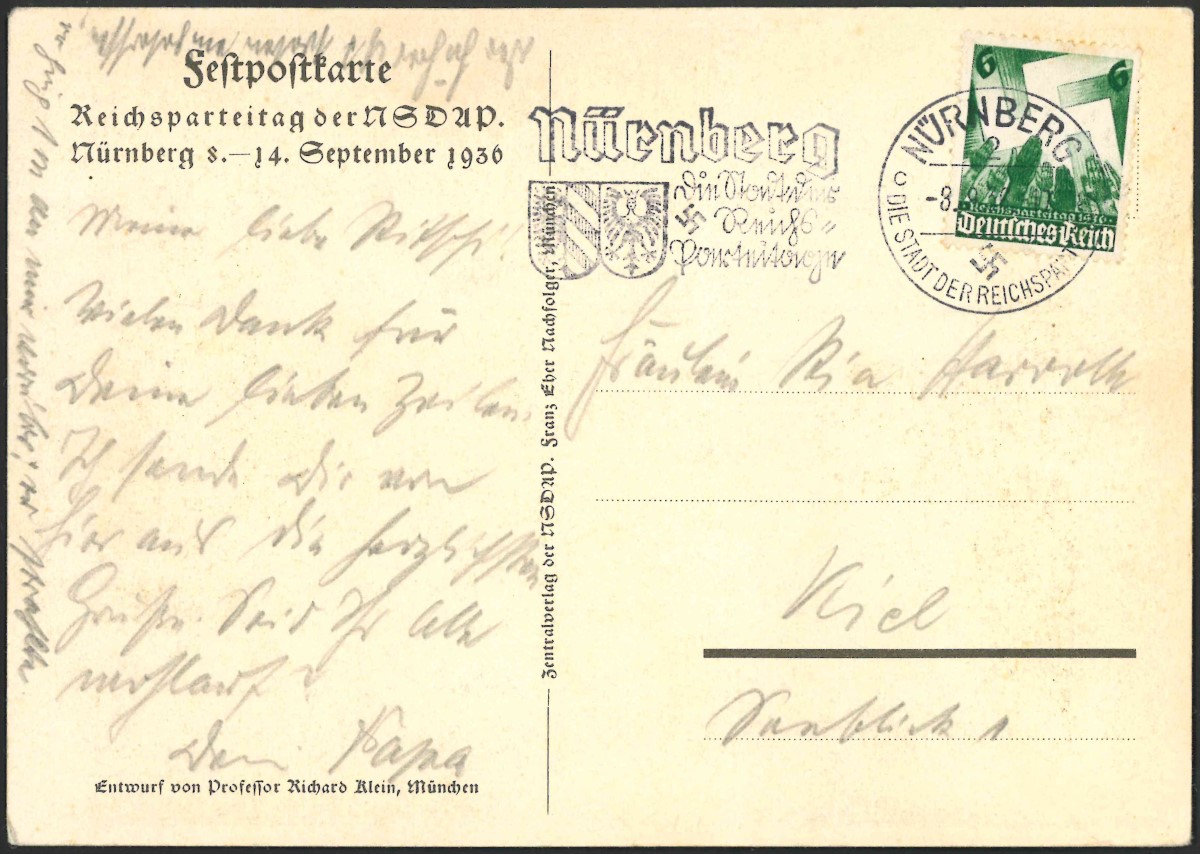 Festpostkarte
Reichsparteitag der NSDAP.
Nürnberg 8.–14. September 1936
Meine liebe
Vielen Dank für
Deine lieben Zeilen.
Ich sende Dir von
hier aus die herzlichsten
Grüße. Seid Ihr Alle
wohlauf?
Dein Papa
Entwurf von Professor Richard Klein, München
Zentralverlag der NSDAP. Franz Eher Nachfolger, München
Nürnberg
Die Stadt der
Reichs-
parteitage
NÜRNBERG
2
-8.
DIE STADT DER REICHSPART
6 6
Reichsparteitag 1936
Deutsches Reich
Fräulein Ria
Kiel
Seeblick 1